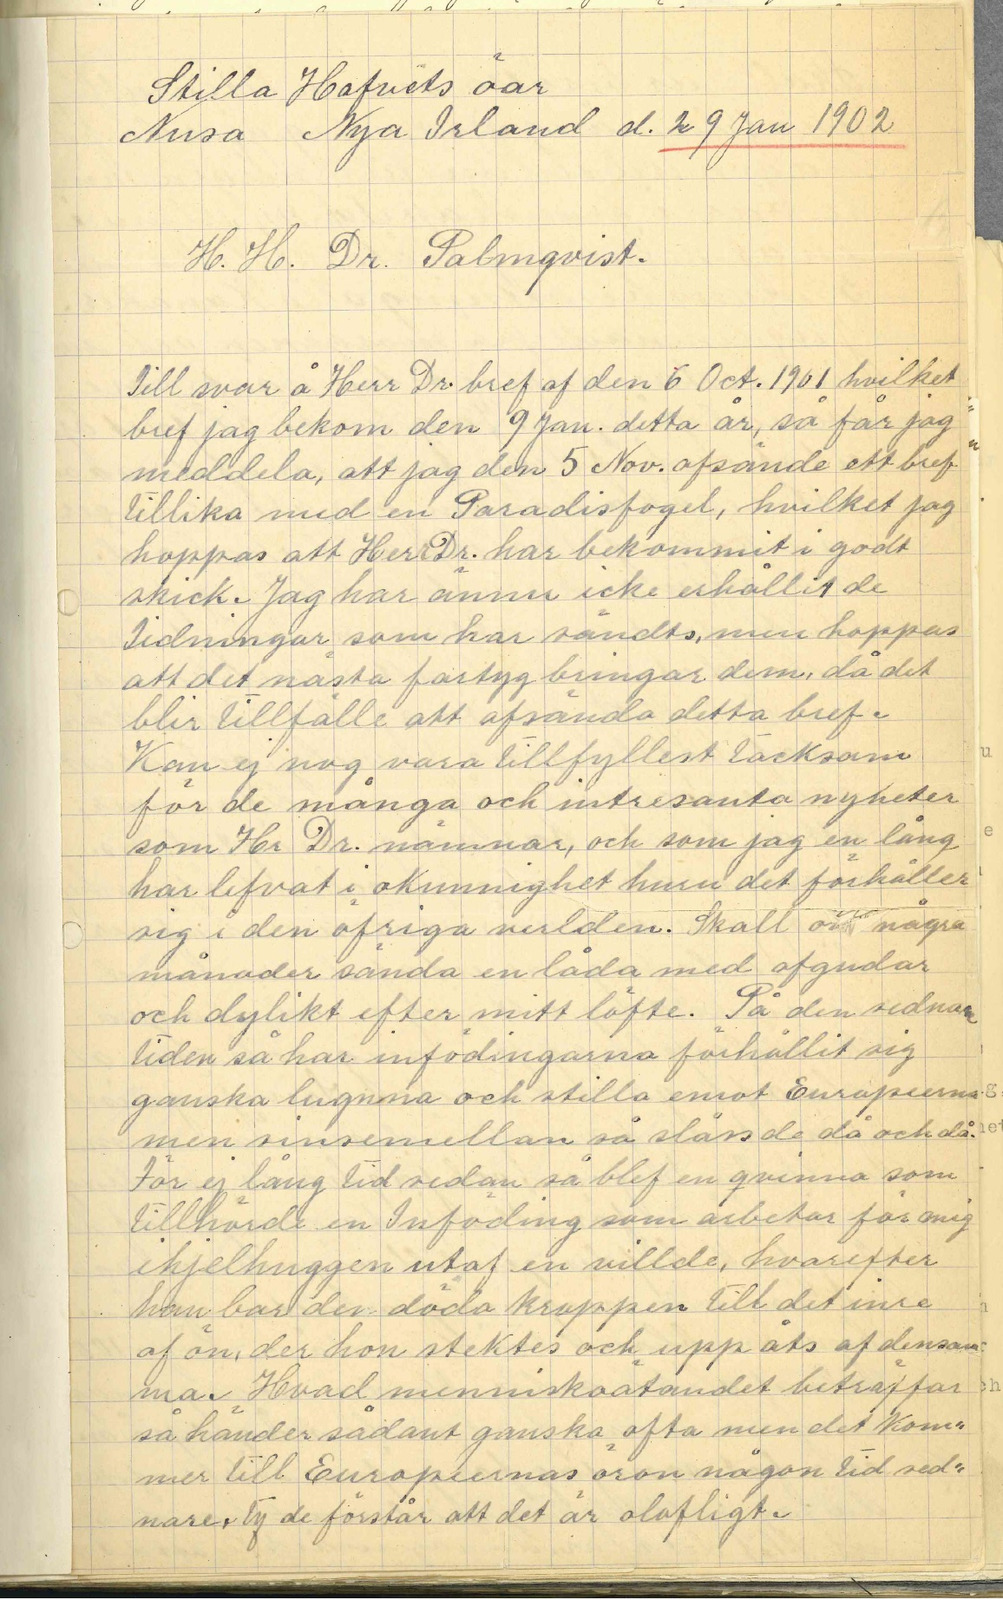 Stilla Hafvets öar
Nusa Nya Irland d. 29 Jan 1902
H. H. Dr. Palmqvist.
Till svar å Herr Dr. bref af den 6 Oct. 1901 hvilket
bref jag bekom den 9 Jan. detta år, så får jag
meddela, att jag den 5 Nov. afsände ett bref
tillika med en Paradisfogel, hvilket jag
hoppas att Herr Dr. har bekommit i godt
skick. Jag har ännu icke erhållit de
Tidningar som har sändts, men hoppas
att det nästa fartyg bringar dem, då det
blir tillfälle att afsända detta bref.
Kan ej nog vara tillfyllest tacksam
för de många och intresanta nyheter
som Hr Dr. nämnar, och som jag en lång
har lefvat i okunnighet huru det förhåller
sig i den öfriga verlden. Skall några
månader sända en låda med afgudar
och dylikt efter mitt löfte. På den sednare
tiden så har infödingarna förhållit sig
ganska lugnna och stilla emot Europeerna
men sinsemellan så slåss de då och då.
För ej lång tid sedan så blef en qvinna som
tillhörde en Inföding som arbetar för mig
ihjelhuggen utaf en villde, hvarefter
han bar den döda kroppen till det inre
af ön, der hon stektes och upp åts af densam-
ma. Hvad menniskoätandet beträffar
så händer sådant ganska ofta men det kom-
mer till Europeernas öron någon tid sed-
nare, ty de förstår att det är olofligt.